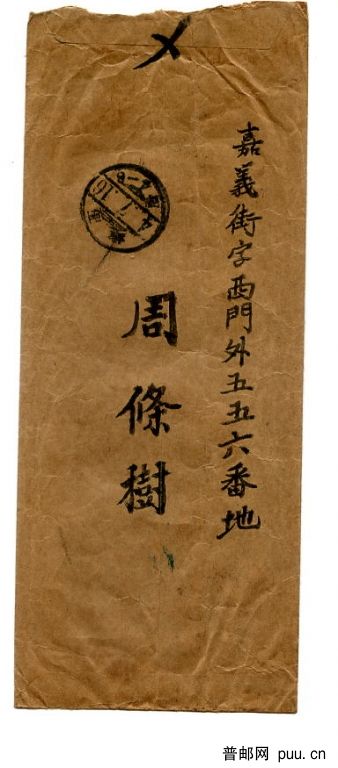 嘉義街字西門外五五六番地
周條樹
普邮网 puu.cn